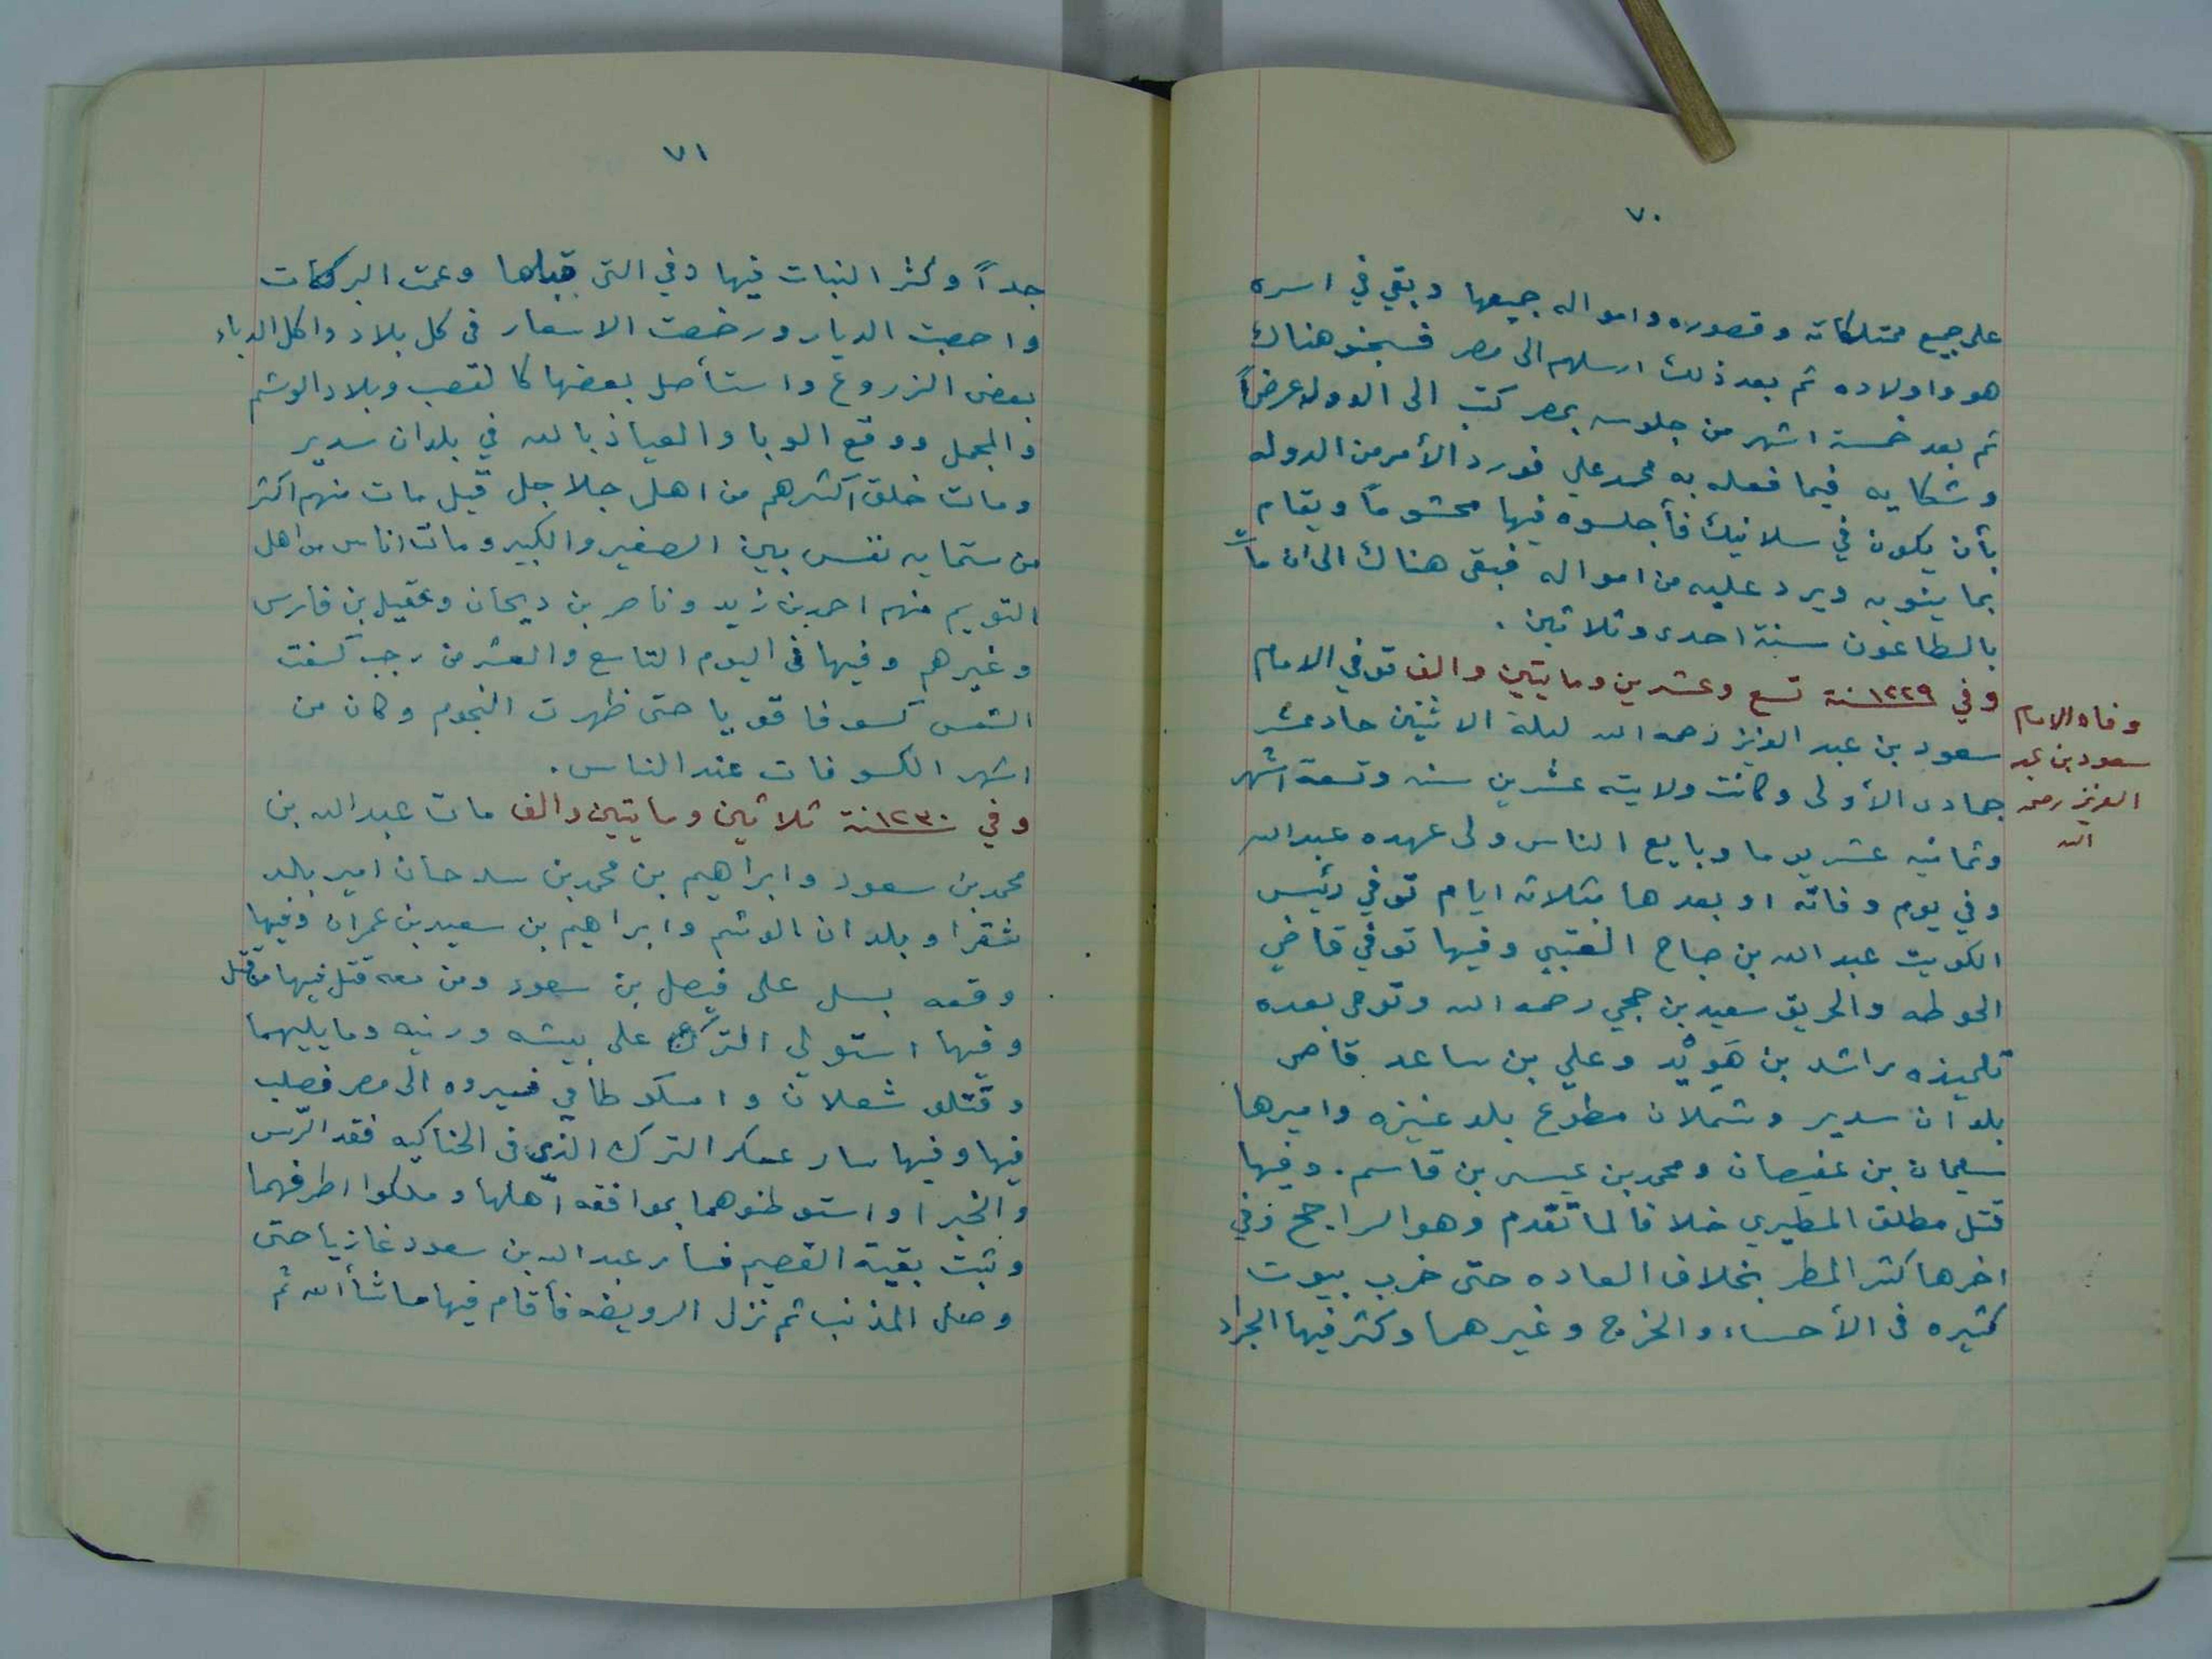 ٧٠
على جميع ممتلكاته وقصوره وامواله جميعها وبقي في اسره
هو واولاده ثم بعد ذلك ارسلهم الى مصر فسجنو هناك
ثم بعد خمسة اشهر من جلوسه بمصر كتب الى الدوله عرضاً
وشكايه فيما فعله به محمد علي فورد الأمر من الدوله
بأن يكون في سلانيك فأجلسوه فيها محشوماً ويقام
بما ينوبه ويرد عليه من امواله فبقى هناك الى ان مات
بالطاعون سنة احدى وثلاثين .
وفي ١٢٢٩سنة تسع وعشرين ومايتين والف توفي الامام
سعود بن عبد العزيز رحمه الله ليلة الاثنين حادعشر
جمادى الأولى وكانت ولايته عشرين سنه وتسعة اشهر
وثمانيه عشر يوما وبايع الناس ولى عهده عبدالله
وفي يوم وفاته او بعدها بثلاثه ايام توفي رئيس
الكويت عبدالله بن صباح العتبي وفيها توفي قاضي
الحوطه والحريق سعيد بن حجي رحمه الله وتوفى بعده
تلميذه راشد بن هَوِيْد وعلي بن ساعد قاضى
بلدان سدير وشملان مطوع بلد عنيزه واميرها
سليمان بن عفيصان ومحمد بن عيسى بن قاسم . وفيها
قتل مطلق المطيري خلافا لما تقدم وهو الراجح وفي
اخرها كثر المطر بخلاف العاده حتى خرب بيوت
كثيره فى الأحساء والخرج وغيرهما وكثر فيها الجراد
وفاه الامام
سعود بن عبد
العزيز رحمه
الله
٧١
جداً وكثر النبات فيها وفي التى قبلها وعمت البركات
واخصبت الديار ورخصت الاسعار فى كل بلاد واكل الدباء
بعض الزروع واستأصل بعضها كالقصب وبلاد الوشم
والمحمل ووقع الوبا والعياذ بالله في بلدان سدير
ومات خلق اكثرهم من اهل جلاجل قيل مات منهم اكثر
من ستمايه نفس بين الصغير والكبير ومات اناس من اهل
التويم منهم احمد بن زيد وناصر بن ديحان وعقيل بن فارس
وغيرهم وفيها فى اليوم التاسع والعشر من رجب كسفت
الشمس كسوفا قويا حتى ظهرت النجوم وكان من
اشهر الكسوفات عند الناس .
وفي ١٢٣٠سنة ثلاثين ومايتين والف مات عبدالله بن
محمد بن سعود وابراهيم بن محمد بن سدحان امير بلد
شقرا وبلدان الوشم وابراهيم بن سعيد بن عمران وفيها
وقعه بسل على فيصل بن سعود ومن معه قتل فيها من قتل
وفيها استولي الترك على بيشه ورنيه ومايليهما
وقتلو شعلان وامسكو طامي فسيروه الى مصر فصلب
فيها وفيها سار عسكر الترك الذي فى الحناكيه فقد الرّس
والخبرا واستوطنوهما بموافقه اهلها وملكوا اطرفهما
وثبت بقية القصيم فسار عبدالله بن سعود غازيا حتى
وصل المذنب ثم نزل الرويضه فأقام فيها ماشأالله ثم